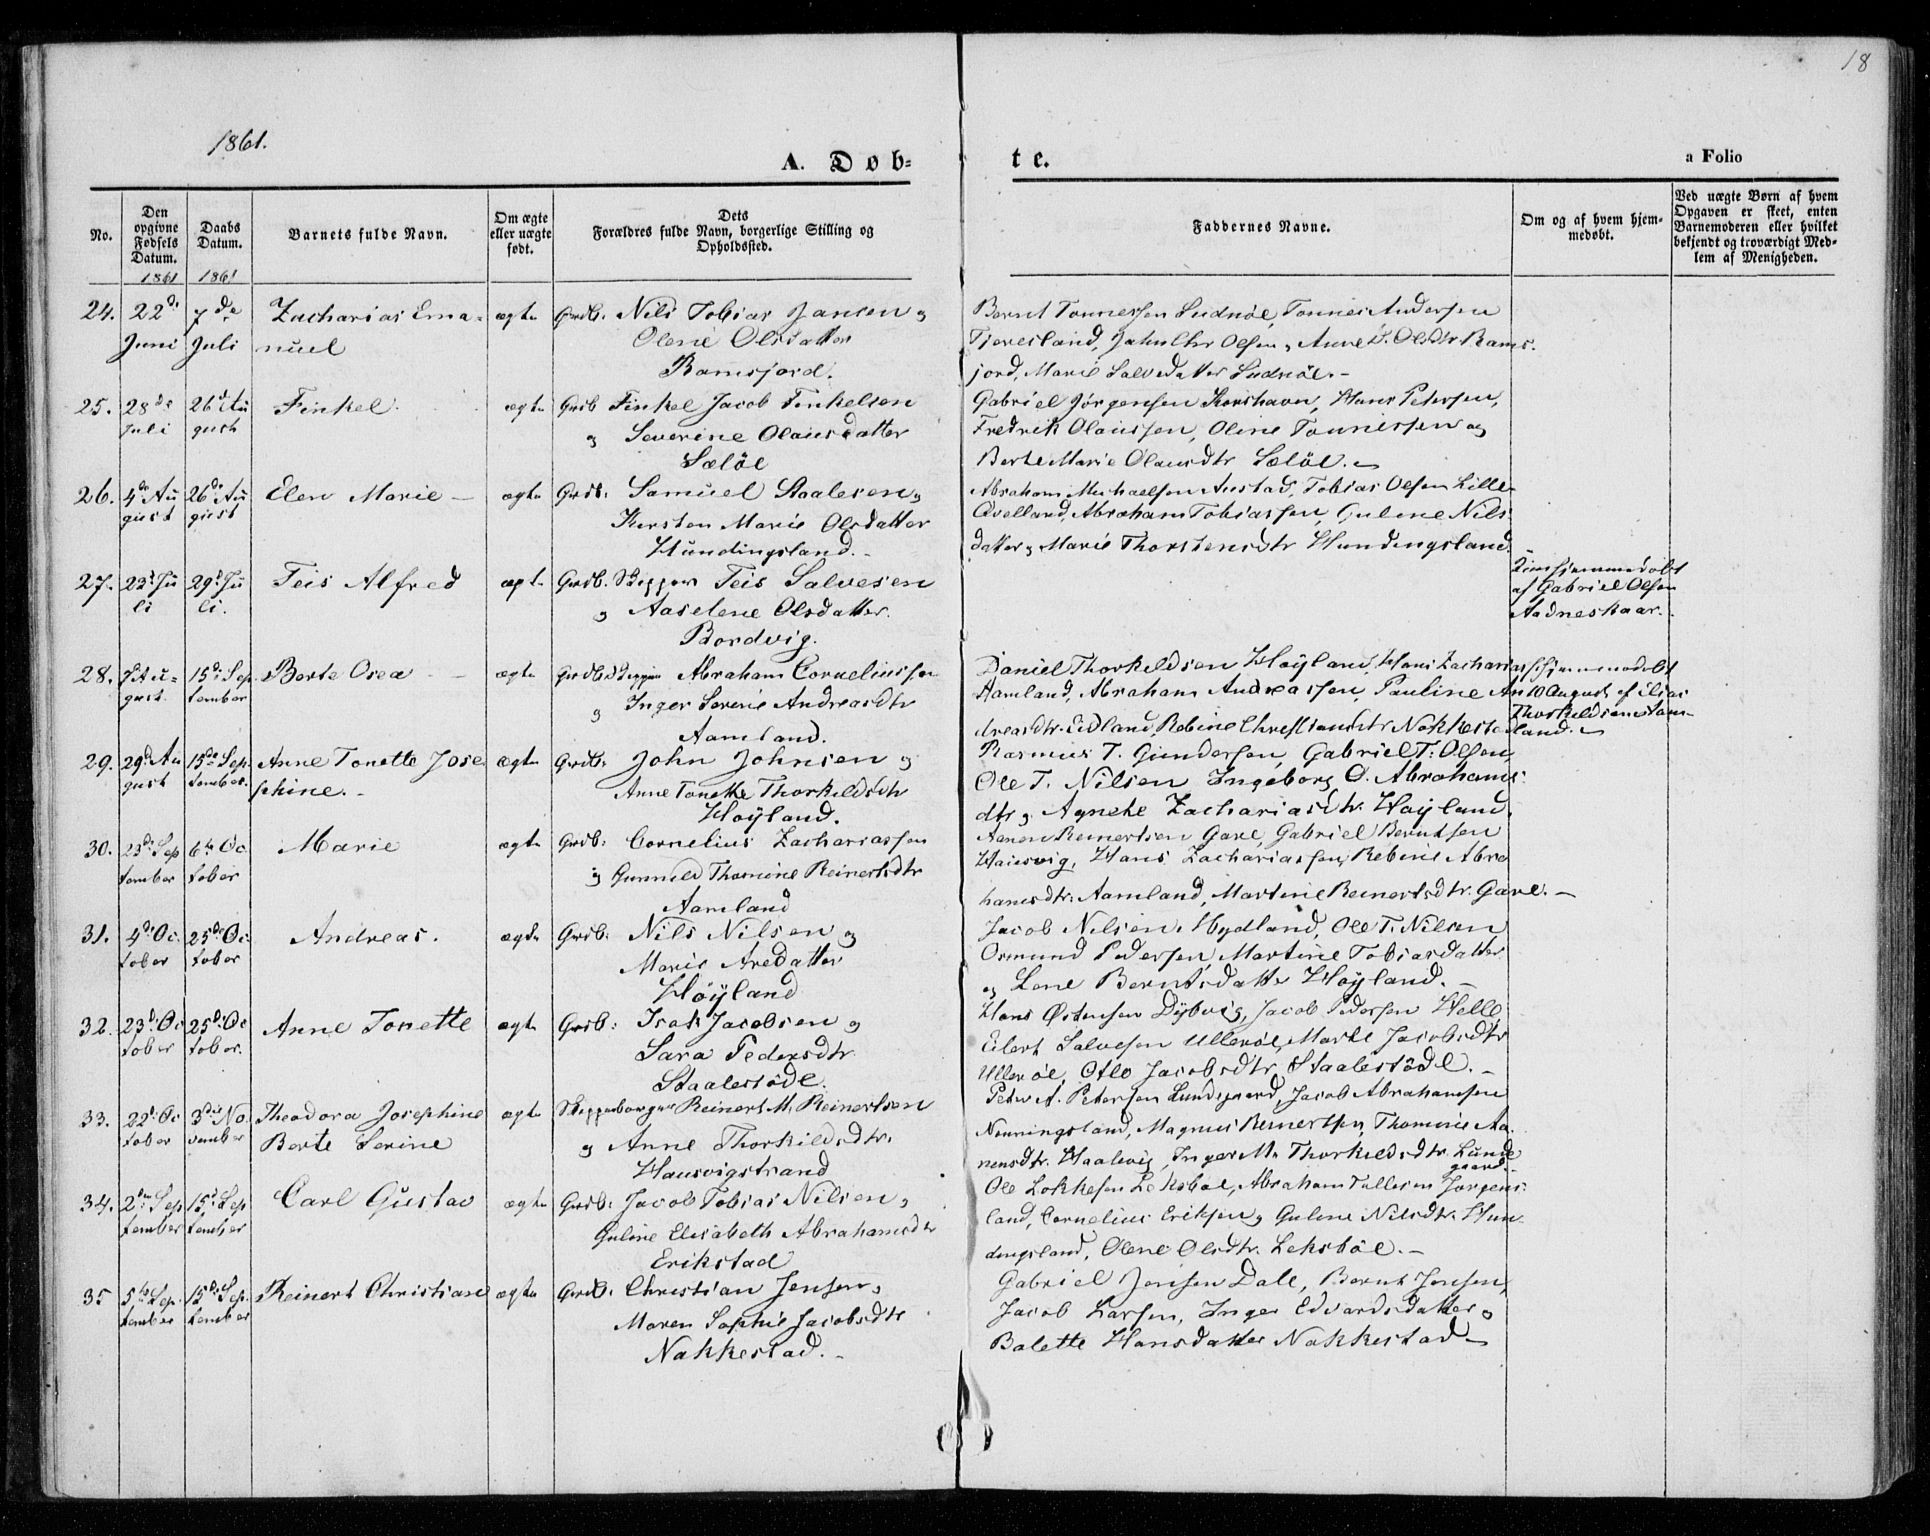 18
1861.
A. Døb-
te.
a Folio
No.
Den opgivne Fødsels Datum.
1861
Daabs Datum.
1861
Barnets fulde Navn.
Om ægte eller uægte født.
Dets Forældres fulde Navn, borgerlige Stilling og Opholdssted.
Faddernes Navne.
Om og af hvem hjemmedøbt.
Ved uægte Børn af hvem Opgaven er skeet, enten Barnemoderen eller hvilket bekjendt og troværdigt Medlem af Menigheden.
24. 22de 7de Zacharias Ema- ægte Grdb. Nils Tobias Jansen og
Juni Juli nuel Olene Olsdatter
Ramsjord.
Bernt Tønnessen Sudnöe, Tønnes Andersen
Tjovesland, Jahn Chr Olsen, Anne S. Olsdtr Rams-
jord, Marie Salvedatter Sudnöe.-
25. 28de 26d Au Finkel ægte Grdb Finkel Jacob Finkelsen
Juli gust og Severine Olausdatter
Sælöe
Gabriel Jörgensen Korshavn, Hans Petersen,
Fredrik Olaussen, Olene Tønnessen og
Berte Marie Olausdtr Sælöe.-
26. 4de Au 26de Au Elen Marie - ægte Grdb. Samuel Staalesen og
gust gust Kirsten Marie Olsdatter
Hundingsland.-
Abraham Michaelsen Austad, Tobias Olsen Lille-
Qvelland, Abraham Tobiassen, Guline Nils-
datter og Marie Thorstensdtr Hundingsland.
27. 23d Ju 29d Ju Teis Alfred ægte Grdb. Skipper Teis Salvesen
li li. og Aaselene Olsdatter.
Bordvig.
hjemmedøbt
af Gabriel Olsen
Aadneskaar.-
28. 7 Au- 15de Sep Berte Osea - ægte Grdb Skipper Abraham Corneliussen
gust. tember og Inger Serine Andreasdtr
Aamland.
Daniel Thorkildsen Höyland, Hans Zacharias
Aamland, Abraham Andreassen, Pauline An
dreasdtr. Eidland, Rebine Christiansdtr Nakkestad
hjemmedöbt
10 August af Elias
Thorkildsen Aam-
land.-
29. 29d Au 15de Sep Anne Tonette Jose ægte Grdb. John Johnsen og
gust tember. phine.- Anne Tonette Thorkildsdtr
Höyland.
Rasmus T. Gundersen, Gabriel T. Olsen,
Ole T. Nilsen Ingeborg O. Abrahams-
dtr og Agnethe Zachariasdtr. Höyland.
30. 23de Sep 6te Oc Marie ægte Grdb: Cornelius Zachariassen
tember tober og Gunnild Thomine Reinertsdtr
Aamland
Aanen Reinertsen Gare, Gabriel Berntsen
Hausvig, Hans Zachariassen, Rebine Abra
hamsdtr. Aamland, Martine Reinertsdtr. Gare.-
31. 4de Oc. 25de Oc- Andreas. ægte Grdb: Nils Nilsen og
tober tober Marie Aredatter
Höyland
Jacob Nilsen Hydland, Ole T. Nilsen
Osmund Pedersen, Martine Tobiasdatter
og Lene Berntsdatter Höyland.-
32. 23de Oc 25de Oc Anne Tonette ægte Grdb: Isak Jacobsen og
tober tober. Sara Pedersdtr
Staalestöde.
Hans Østensen Dybvig, Jacob Pedersen Helle
Eilert Salvesen Ulleröe, Marte Jacobsdtr
Ulleröe, Otto Jacobsdtr Staalestöde.-
33. 22de Oc 3die No Theodora Josephine ægte Skipperborger Reinert M. Reinertsen
tober vember Berte Serine og Anne Thorkildsdtr.
Hausvigstrand
Peter A. Petersen Lundegaard, Jacob Abrahamsen
Nonningsland, Magnus Reinertsen, Thomine Aa-
nensdtr. Haalevig, Inger M. Thorkildsdtr. Lunde
gaard.
34. 2den Sep 15de Sep Carl Gustav ægte Grdb: Jacob Tobias Nilsen og
tember tember Guline Elisabeth Abrahamsdtr
Erikstad
Ole Lokkesen Leksböe, Abraham Tallesen Jörgens-
land, Cornelius Eriksen og Guline Nilsdtr. Hun-
dingsland, Olene Olsdtr. Leksböe.-
35 5te Sep. 15de Sep. Reinert Christian ægte Grdb: Christian Jensen og
tember tember Maren Sophie Jacobsdtr
Nakkestad.-
Gabriel Jensen Dale, Bernt Jensen,
Jacob Larsen, Inger Edvardsdatter og
Balette Hansdatter Nakkestad-